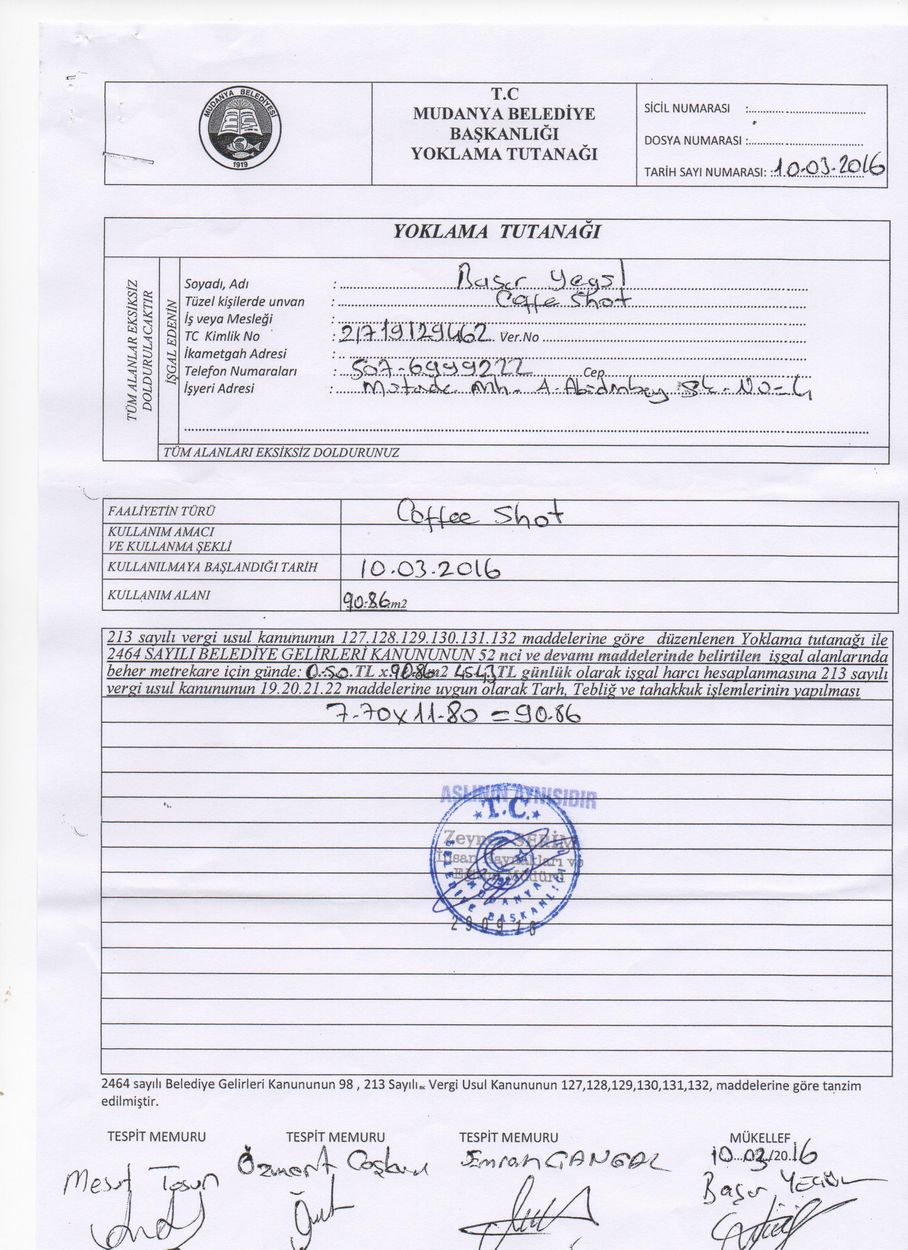 MUDANYA BELEDİYESİ
1919
T.C
MUDANYA BELEDİYE
BAŞKANLIĞI
YOKLAMA TUTANAĞI
SİCİL NUMARASI :
DOSYA NUMARASI :
TARİH SAYI NUMARASI: : 10.03.2016
YOKLAMA TUTANAĞI
TÜM ALANLAR EKSİKSİZ
DOLDURULACAKTIR
İŞGAL EDENİN
Soyadı, Adı : Başar
Tüzel kişilerde unvan : Coffe Shot
İş veya Mesleği :
TC Kimlik No : 21719129462 Ver.No
İkametgah Adresi :
Telefon Numaraları : 507-6999222 Cep
İşyeri Adresi : Mh. Sk. No=4
TÜM ALANLARI EKSİKSİZ DOLDURUNUZ
FAALİYETİN TÜRÜ Coffee Shot
KULLANIM AMACI
VE KULLANMA ŞEKLİ
KULLANILMAYA BAŞLANDIĞI TARİH 10.03.2016
KULLANIM ALANI 90.86 m2
213 sayılı vergi usul kanununun 127.128.129.130.131.132 maddelerine göre düzenlenen Yoklama tutanağı ile
2464 SAYILI BELEDİYE GELİRLERİ KANUNUNUN 52 nci ve devamı maddelerinde belirtilen işgal alanlarında
beher metrekare için günde: 0.50 TL x 90.86 m2 45.43 TL günlük olarak işgal harcı hesaplanmasına 213 sayılı
vergi usul kanununun 19.20.21.22 maddelerine uygun olarak Tarh, Tebliğ ve tahakkuk işlemlerinin yapılması
7.70 x 11.80 = 90.86
ASLININ AYNISIDIR
T.C.
Zeynep
İnsan Kaynakları ve
Eğitim Müdürü
MUDANYA
BELEDİYE BAŞKANLIĞI
290916
2464 sayılı Belediye Gelirleri Kanununun 98 , 213 Sayılı Vergi Usul Kanununun 127,128,129,130,131,132, maddelerine göre tanzim
edilmiştir.
TESPİT MEMURU TESPİT MEMURU TESPİT MEMURU MÜKELLEF
10.03/20.16
Mesut Tosun Özmert Coşkun Emrah GANGAL Başar